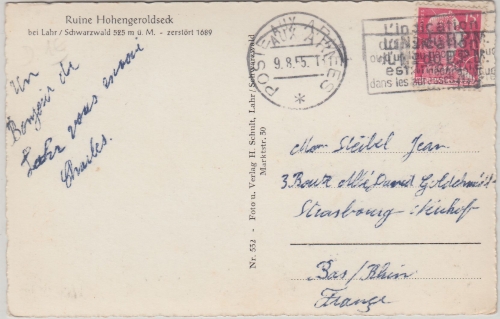 Ruine Hohengeroldseck
bei Lahr / Schwarzwald 525 m ü. M. - zerstört 1689
Un
Bonjour de
Lahr vous envoie
Charles.
Nr. 552 - Foto u. Verlag H. Schult, Lahr/Schwarzwald
Marktstr. 30
POSTE AUX ARMEES
9.8.5
*
l'Indication
du N°
est
dans les adresses
Mon Steibel Jean
3 Route Abbé David Goldschmidt
Strasbourg-Neuhof
Bas/Rhin
France